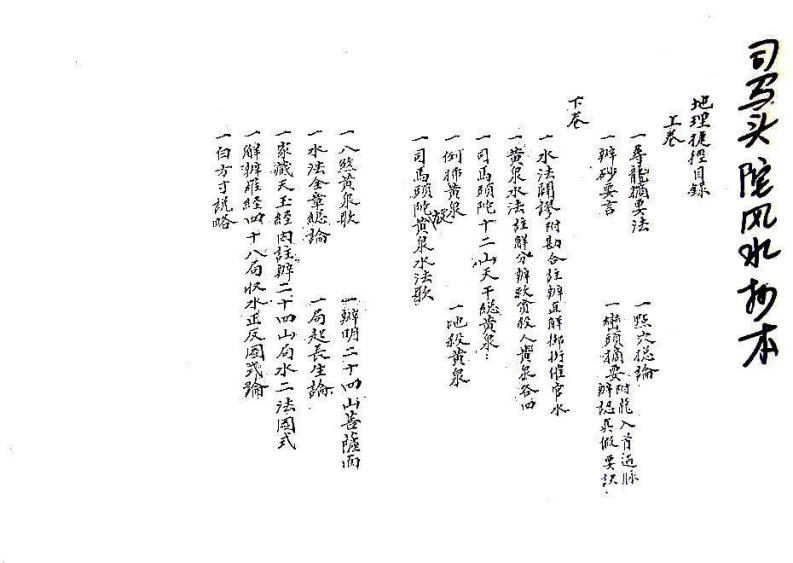 司马头陀风水抄本
地理捷徑目錄
上卷
一尋龍摘要法
一點穴總論
一辨砂要言
一巒頭摘要附龍入首過脉
辨認真假要訣
下卷
一水法闢謬附勘合註辨直解御街催官水
一黃泉水法註解分辨救貧殺人黃泉各四
一司馬頭陀十二山天干總黃泉
一例推黃泉
一地殺黃泉
一司馬頭陀黃泉水法歌
一八煞黃泉歌
一辨明二十四山菩薩面
一水法全章總論
一局起長生論
一家藏天玉經内註辨二十四山局水二法圖式
一解辨雅經四十八局收水正反圖式論
一白方寸說略